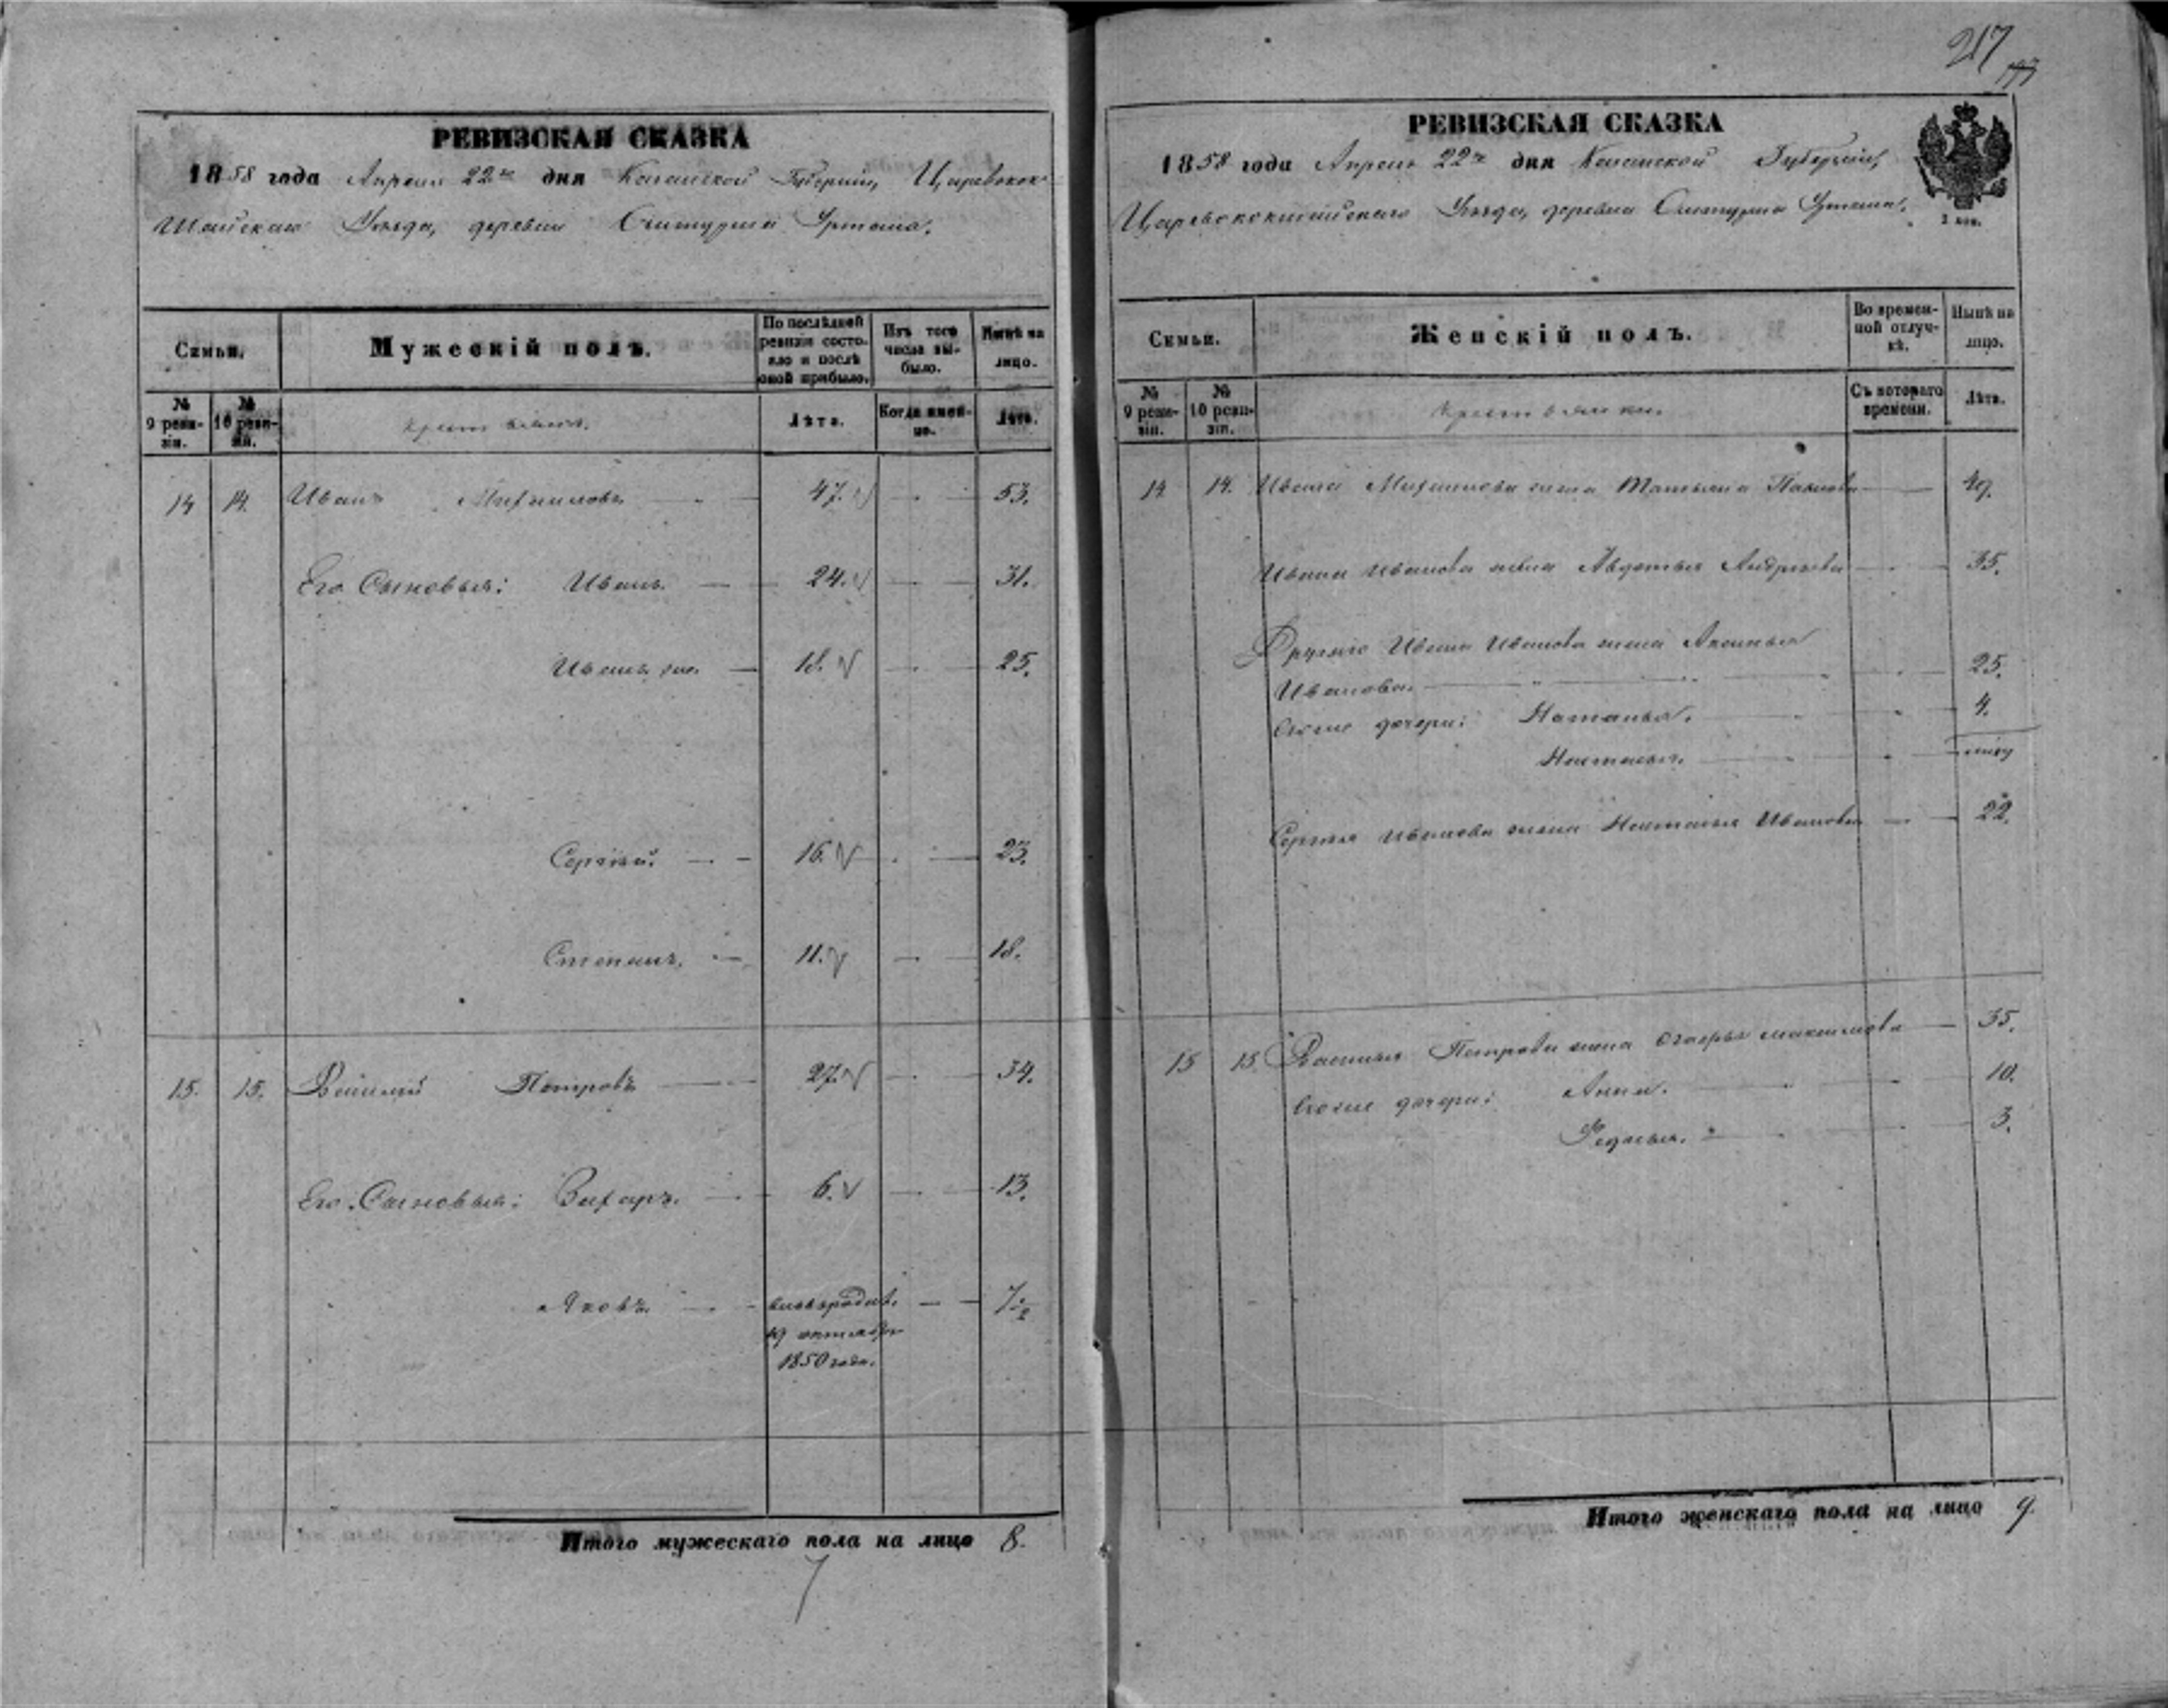 217
193
РЕВИЗСКАЯ СКАЗКА
1858 года Апреля 22го дня Казанской Губерніи, Царевокок-
шайскаго Уѣзда, деревни
Семьи.
Мужескій полъ.
По послѣдней ревизіи состояло и послѣ оной прибыло.
Изъ того числа выбыло.
Нынѣ на лицо.
№ 9 ревизіи.
№ 10 ревизіи.
крестьяне.
Лѣта.
Когда именно.
Лѣта.
14 14. Иванъ Михаиловъ 47. 53.
Его Сыновья: Иванъ 24. 31.
Иванъ же. 18. 25.
Сергѣй. 16. 23.
Степанъ. 11. 18.
15. 15. Василій Петровъ 27. 34.
Его Сыновья: Захаръ. 6. 13.
Яковъ. 7½
19 октября
1850 года.
Итого мужескаго пола на лицо 8.
7
РЕВИЗСКАЯ СКАЗКА
1858 года Апреля 22го дня Казанской Губерніи,
Царевококшайскаго Уѣзда, деревни
2 коп.
Семьи.
Женскій полъ.
Во временной отлучкѣ.
Нынѣ на лицо.
№ 9 ревизіи.
№ 10 ревизіи.
крестьянки.
Съ котораго времени.
Лѣта.
14 14. Ивана Михаилова жена Татьяна Павлова 49.
Ивана Иванова жена Авдотья Андреева 35.
Другаго Ивана Иванова жена Акулина
Иванова. 25.
дочери: Наталья. 4.
Настасья.
Сергѣя Иванова жена Наталья Иванова 22.
15 15. Василья Петрова жена Максимова 35.
дочери: Анна. 10.
Федосья. 3.
Итого женскаго пола на лицо 9.